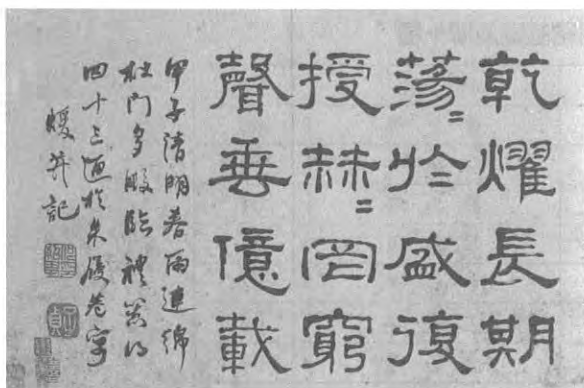 乾燿長期
蕩〻於盛復
授赫〻罔窮
聲垂億載
甲子清明春雨連綿
杜門多暇臨禮器得
四十三通於
并記